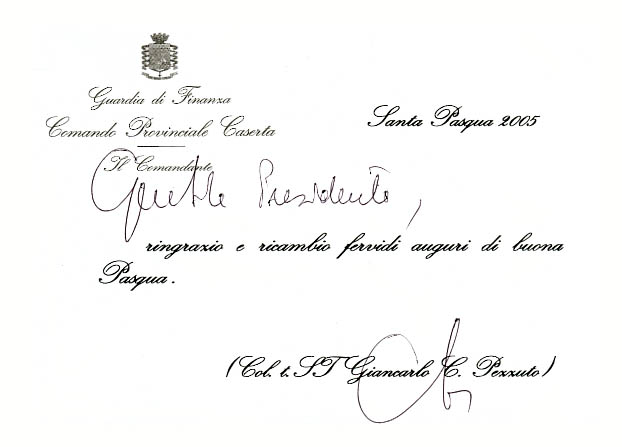 Guardia di Finanza
Comando Provinciale Caserta
Santa Pasqua 2005
Il Comandante
Gentile Presidente,
ringrazio e ricambio fervidi auguri di buona
Pasqua.
(Col. t. ST Giancarlo C. Pezzuto)